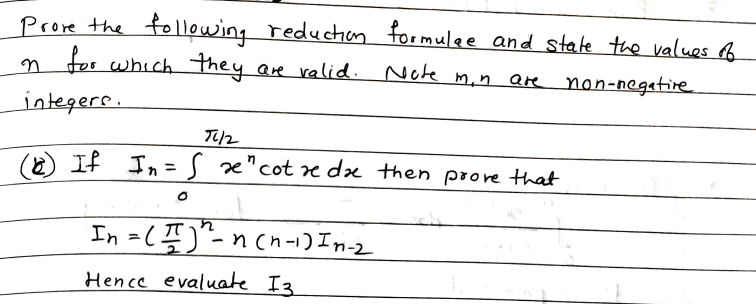 Prove the following reduction formulae and state the values of
n for which they are valid. Note m,n are non-negative
integers.
(b) If In = ∫₀^{π/2} xⁿ cot x dx then prove that
In = (π/2)ⁿ - n (n-1) In-2
Hence evaluate I3